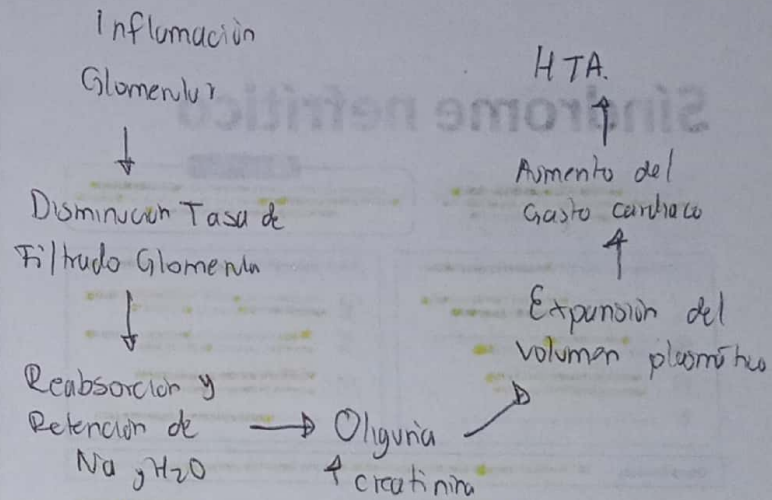 Inflamación
Glomerular
↓
Disminucion Tasa de
Filtrado Glomerular
↓
Reabsorción y
Retención de
Na y H2O
→ Oliguria
↑ creatinina
↗
Expansión del
volumen plasmótico
↑
Aumento del
Gasto cardiaco
↑
HTA.
Síndrome nefrítico